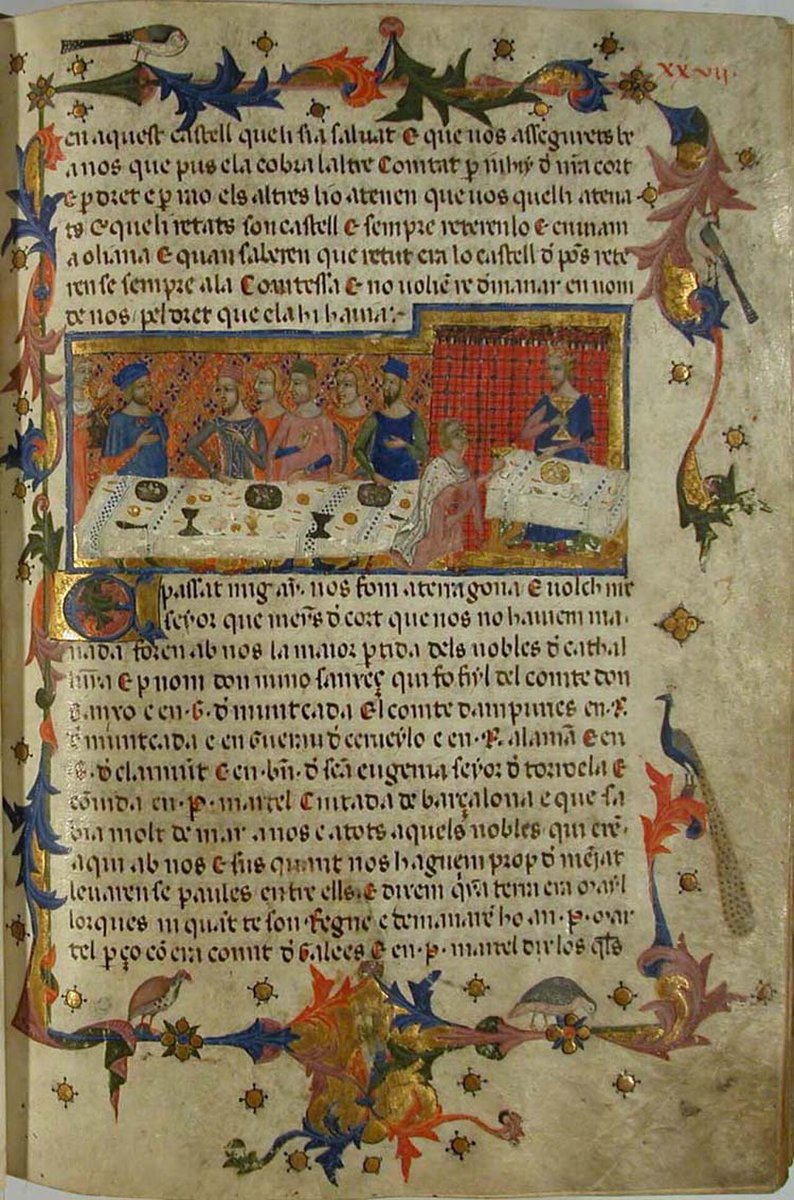 xxvij.
en aquest castell queli sia saluat E que uos assegurets be
a nos que pus ela cobra laltre Comtat
E els altres ho atenen que uos quelli atena
ts E queli retats son castell E sempre reterenlo E enuiam
a oliana E quan saberen que retut era lo castell d pons rete
ren se sempre ala Comtessa E no uolien re dmanar en nom
de nos pel dret que ela hi hauia.
passat mig an. nos fom a terragona E uolch nre
seyor que d cort que nos no hauiem ma
nada foren ab nos la maior ptida dels nobles d cathal
E p nom don nuno sanxeç qui fo fiyl del comte don
sanxo e en .G. d muntcada El comte dampuries en .R.
d muntcada e en Guerau d cerueylo e en .R. alama E en
.G. d clarmunt E en .bn. d sca eugenia seyor d torroela E
en .P. martel Ciutada de barçalona e que sa
bia molt de mar a nos e a tots aquels nobles qui eren
aqui ab nos E sus quant nos haguem prop d menjat
leuaren se paules entre ells. E diren qna terra era mayl
lorques ni quant te son Regne e demanaren ho a .P. mar
tel p ço com era comit d Galees E en .P. martel dix los